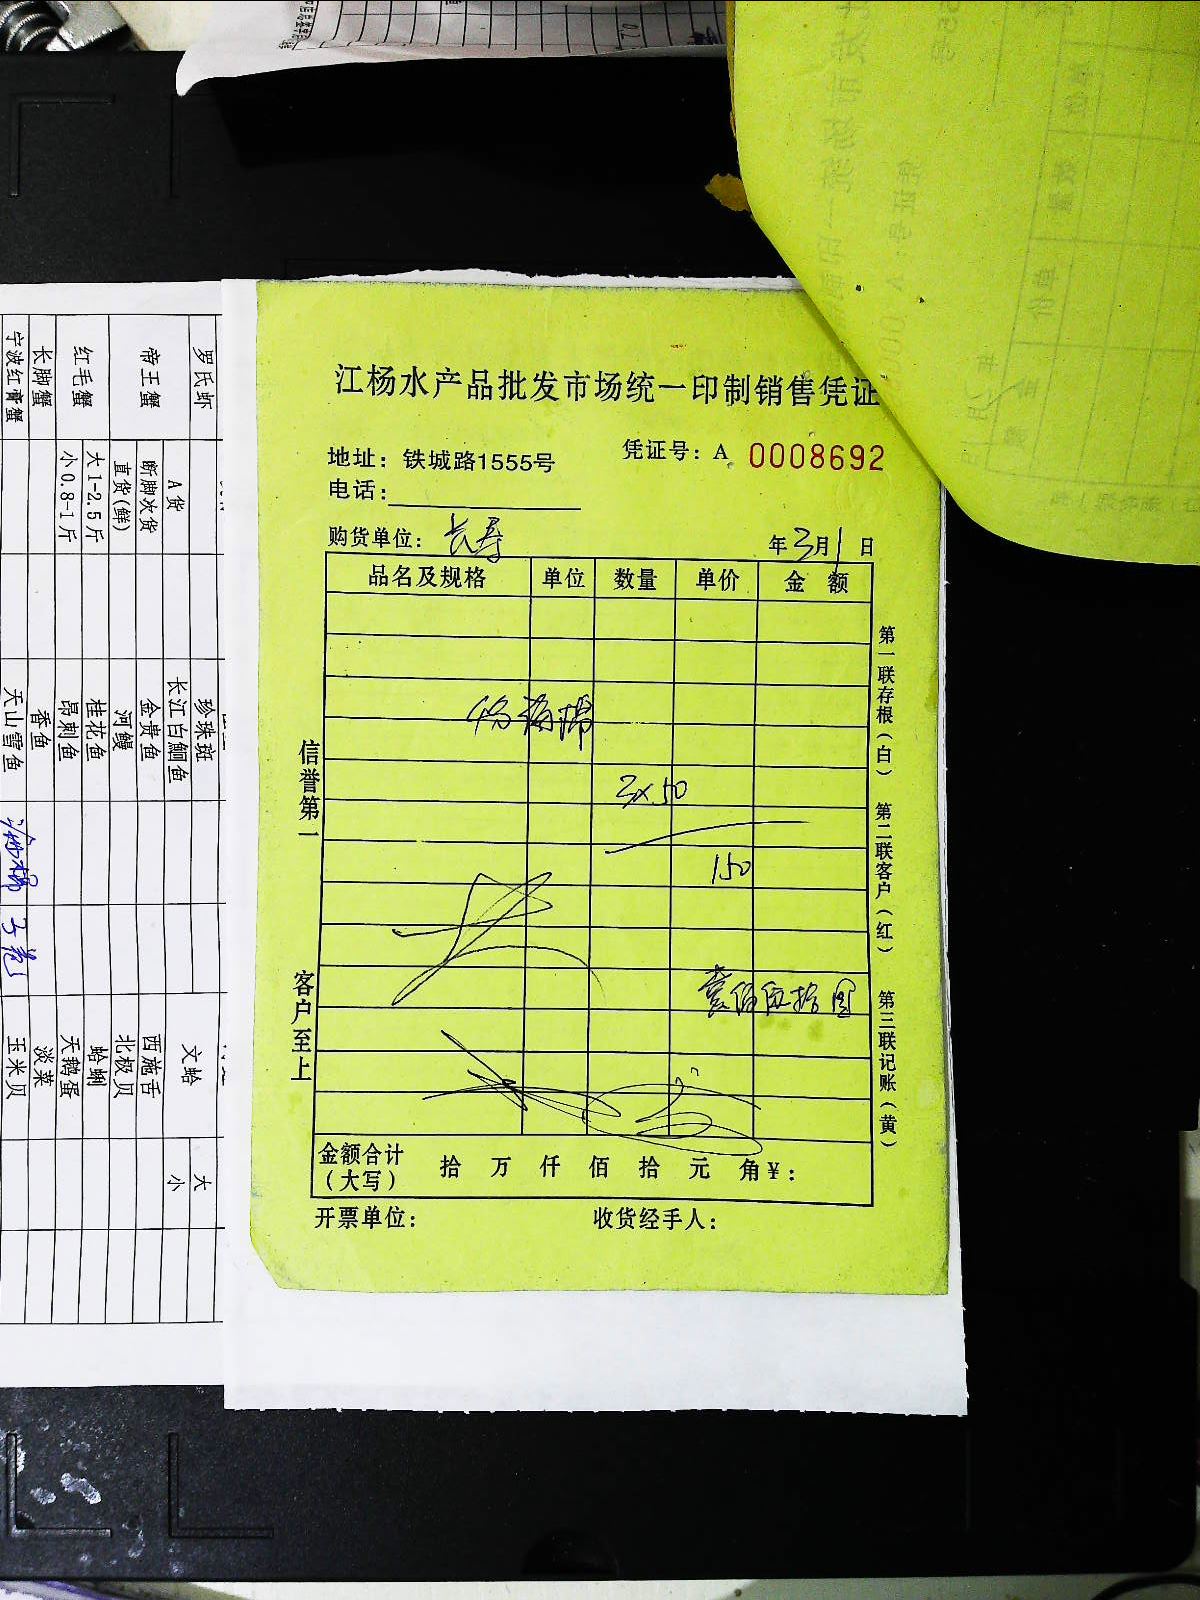 江杨水产品批发市场统一印制销售凭证
地址：铁城路1555号
凭证号：A 0008692
电话：
购货单位：长寿
年3月1日
品名及规格 单位 数量 单价 金额
3×50
150
壹佰伍拾圆
金额合计（大写） 拾 万 仟 佰 拾 元 角 ¥：
开票单位：
收货经手人：
信誉第一
客户至上
第一联存根（白）
第二联客户（红）
第三联记账（黄）
罗氏虾
帝王蟹
A货
断脚次货
直货(鲜)
红毛蟹
大1-2.5斤
小0.8-1斤
长脚蟹
宁波红膏蟹
珍珠斑
长江白鮰鱼
金贵鱼
河鳗
桂花鱼
昂刺鱼
香鱼
天山雪鱼
文蛤
大
小
西施舌
北极贝
蛤蜊
天鹅蛋
淡菜
玉米贝